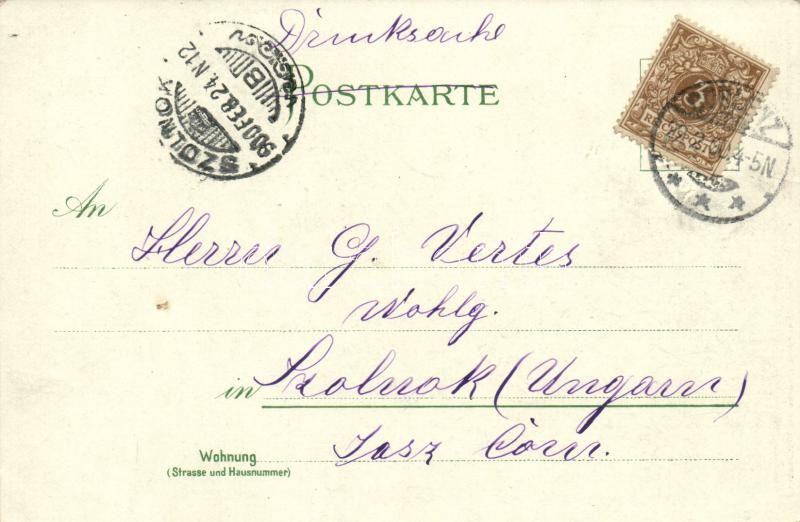 Drucksache
POSTKARTE
SZOLNOK
900 FEB. 24. N12
B
4-5N
An
Herrn G. Vertes
Wohlg.
in Szolnok (Ungarn)
Jasz Com.
Wohnung
(Strasse und Hausnummer)